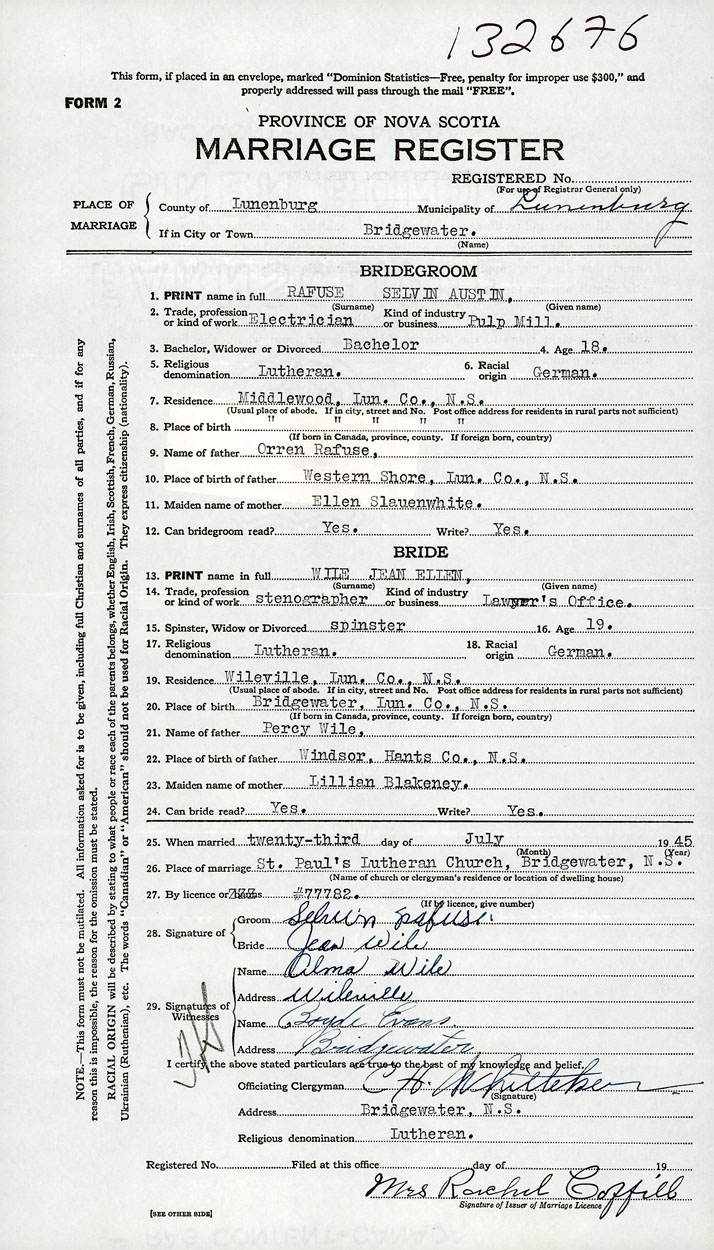 132676
This form, if placed in an envelope, marked "Dominion Statistics—Free, penalty for improper use $300," and
properly addressed will pass through the mail "FREE".
FORM 2
PROVINCE OF NOVA SCOTIA
MARRIAGE REGISTER
REGISTERED No.
(For use of Registrar General only)
PLACE OF MARRIAGE
County of Lunenburg Municipality of Lunenburg
If in City or Town Bridgewater.
(Name)
BRIDEGROOM
1. PRINT name in full RAFUSE SELVIN AUSTIN,
(Surname) (Given name)
2. Trade, profession or kind of work Electrician Kind of industry or business Pulp Mill.
3. Bachelor, Widower or Divorced Bachelor 4. Age 18.
5. Religious denomination Lutheran. 6. Racial origin German.
7. Residence Middlewood, Lun. Co., N.S.
(Usual place of abode. If in city, street and No. Post office address for residents in rural parts not sufficient)
8. Place of birth " " " " "
(If born in Canada, province, county. If foreign born, country)
9. Name of father Orren Rafuse,
10. Place of birth of father Western Shore, Lun. Co., N.S.
11. Maiden name of mother Ellen Slauenwhite.
12. Can bridegroom read? Yes. Write? Yes.
BRIDE
13. PRINT name in full WILE JEAN ELLEN,
(Surname) (Given name)
14. Trade, profession or kind of work stenographer Kind of industry or business Lawyer's Office.
15. Spinster, Widow or Divorced spinster 16. Age 19.
17. Religious denomination Lutheran. 18. Racial origin German.
19. Residence Wileville, Lun. Co., N.S.
(Usual place of abode. If in city, street and No. Post office address for residents in rural parts not sufficient)
20. Place of birth Bridgewater, Lun. Co., N.S.
(If born in Canada, province, county. If foreign born, country)
21. Name of father Percy Wile,
22. Place of birth of father Windsor, Hants Co., N.S.
23. Maiden name of mother Lillian Blakeney.
24. Can bride read? Yes. Write? Yes.
25. When married twenty-third day of July 1945
(Month) (Year)
26. Place of marriage St. Paul's Lutheran Church, Bridgewater, N.S.
(Name of church or clergyman's residence or location of dwelling house)
27. By licence or #77782.
(If by licence, give number)
28. Signature of
Groom Selvin Rafuse.
Bride Jean Wile
29. Signatures of Witnesses
Name Alma Wile
Address Wileville
Name Boyde Evans.
Address Bridgewater
I certify the above stated particulars are true to the best of my knowledge and belief.
Officiating Clergyman C H. Whitteker
(Signature)
Address Bridgewater, N.S.
Religious denomination Lutheran.
Registered No. Filed at this office day of 19
Mrs Rachel Coffill
Signature of Issuer of Marriage Licence
[SEE OTHER SIDE]
NOTE.—This form must not be mutilated. All information asked for is to be given, including full Christian and surnames of all parties, and if for any
reason this is impossible, the reason for the omission must be stated.
RACIAL ORIGIN will be described by stating to what people or race each of the parents belongs, whether English, Irish, Scottish, French, German, Russian,
Ukrainian (Ruthenian), etc. The words "Canadian" or "American" should not be used for Racial Origin. They express citizenship (nationality).